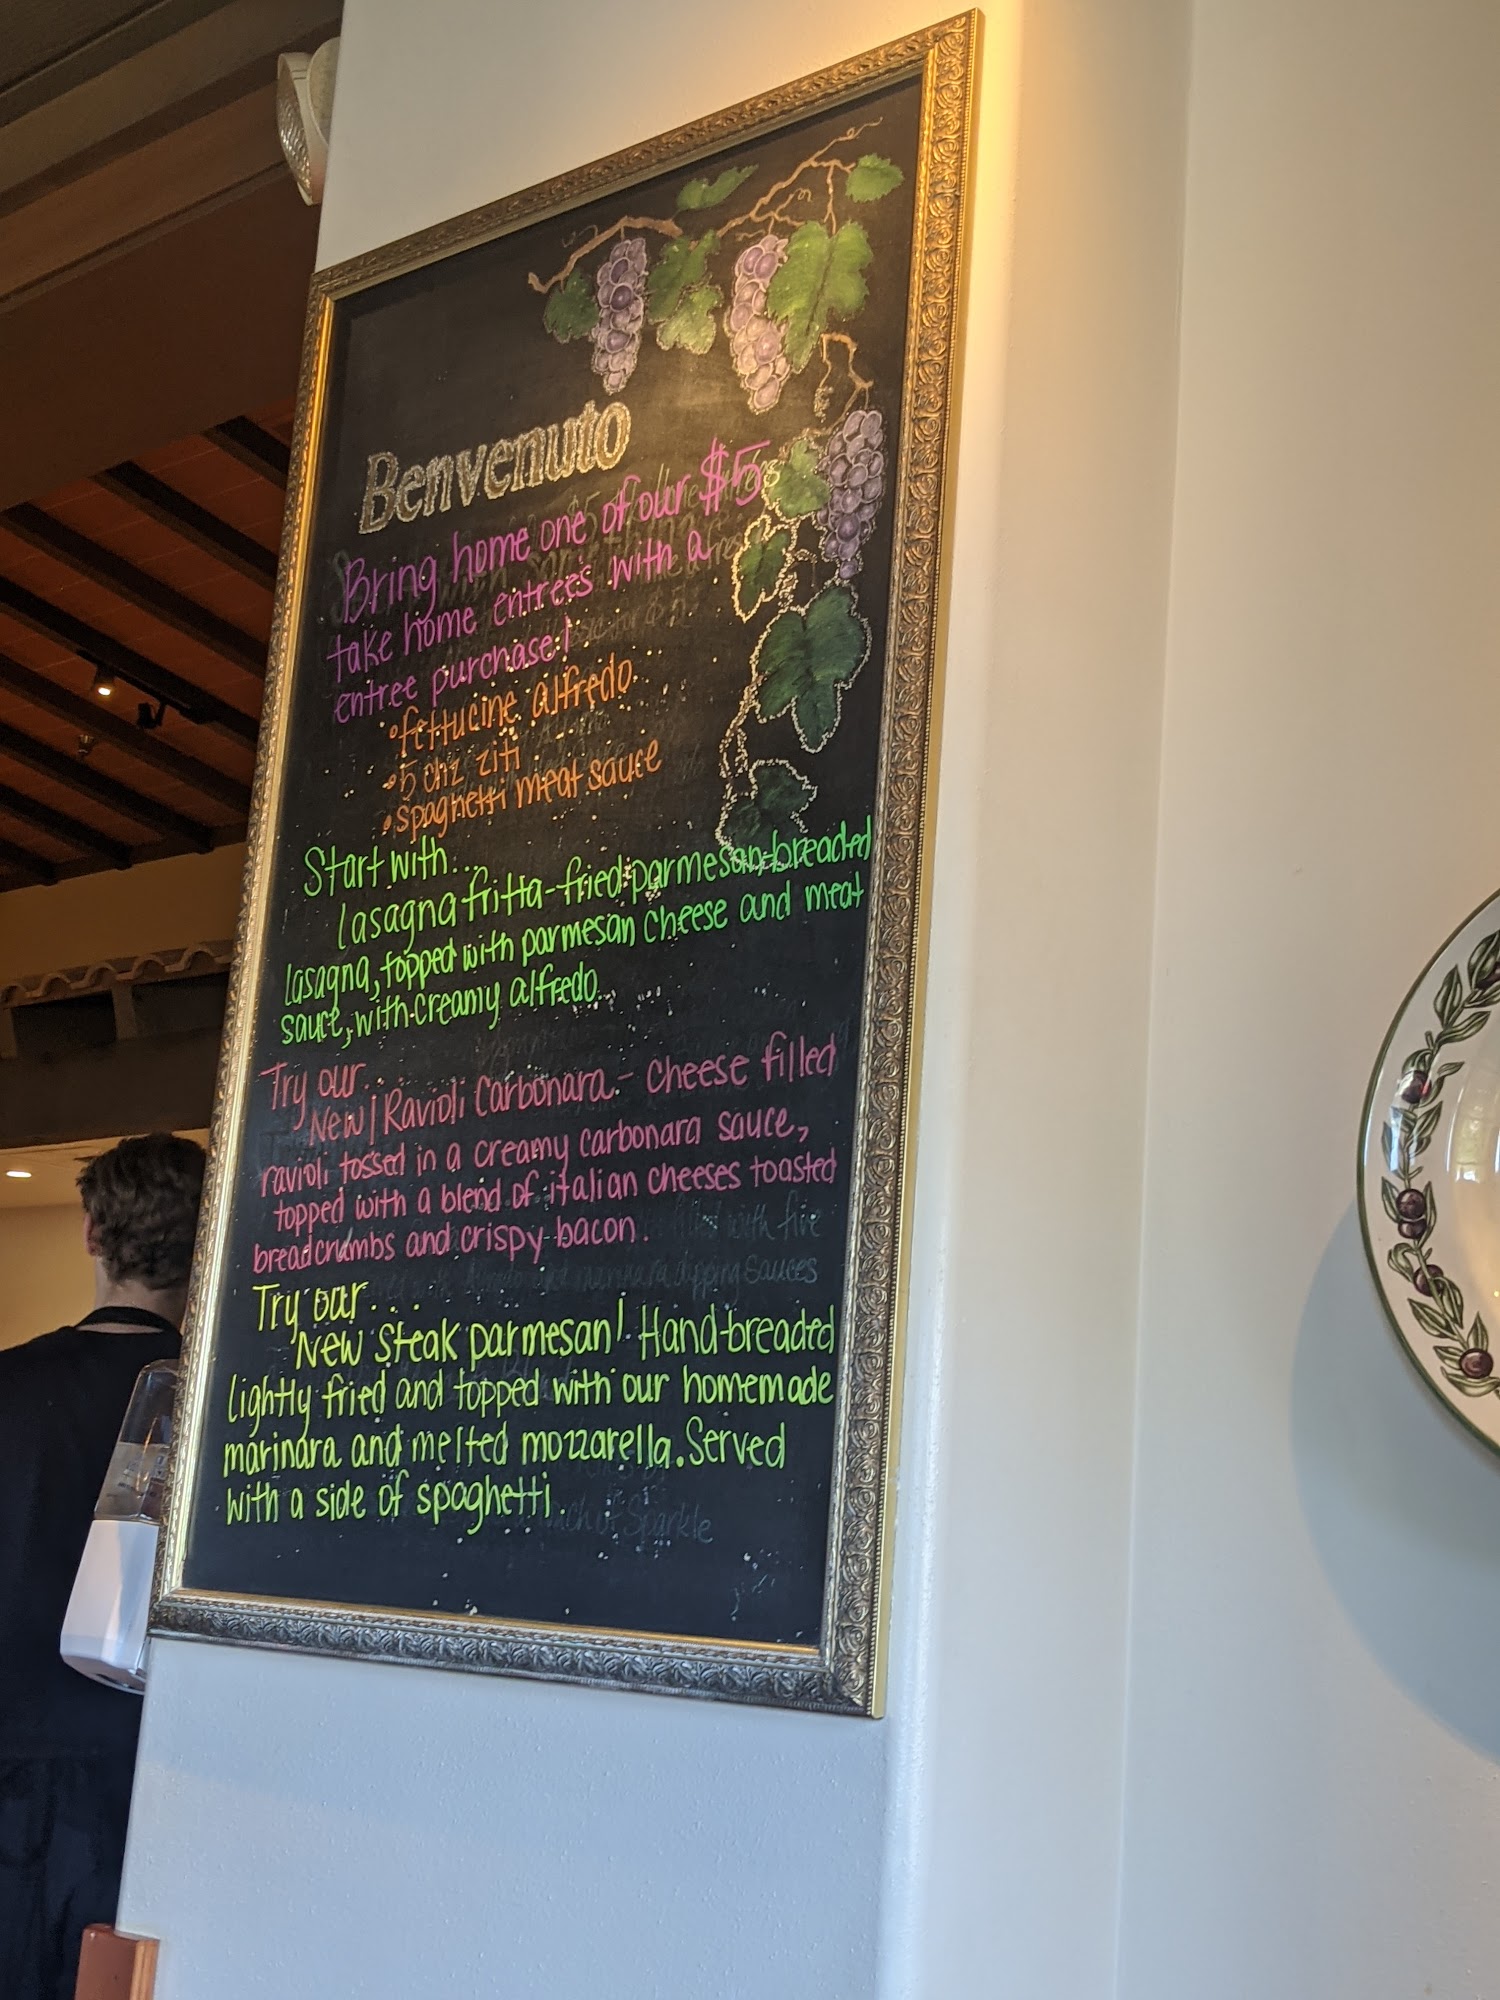 Benvenuto
Bring home one of our $5
take home entreés with a
entree purchase!
• fettucine alfredo
• 5 chz ziti
• spaghetti meat sauce
Start with...
lasagna fritta - fried parmesan-breaded
lasagna, topped with parmesan cheese and meat
sauce, with creamy alfredo.
Try our...
New! Ravioli Carbonara - Cheese filled
ravioli tossed in a creamy carbonara sauce,
topped with a blend of italian cheeses toasted
breadcrumbs and crispy bacon.
Try our...
New steak parmesan! Hand-breaded
lightly fried and topped with our homemade
marinara and melted mozzarella. Served
with a side of spaghetti.